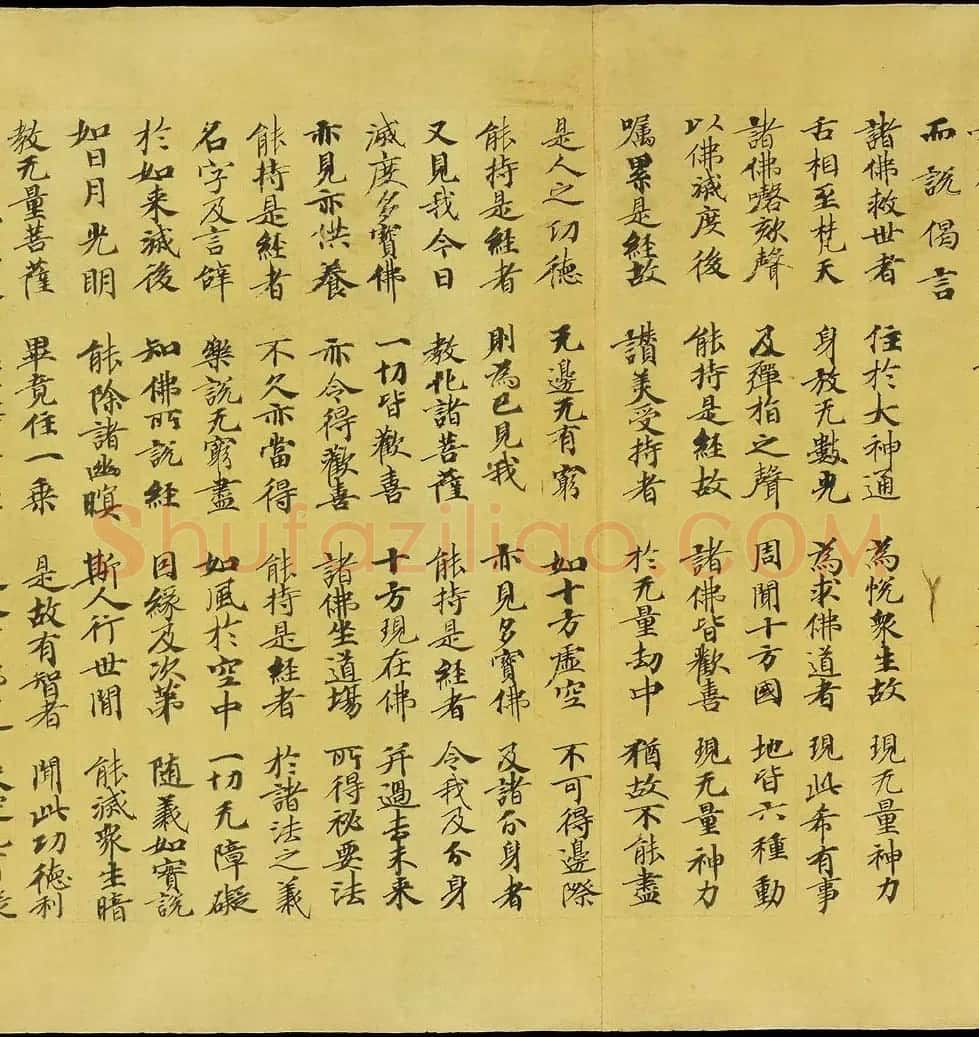 而說偈言
諸佛救世者 住於大神通 為悅衆生故 現无量神力
舌相至梵天 身放无數光 為求佛道者 現此希有事
諸佛謦欬聲 及彈指之聲 周聞十方國 地皆六種動
以佛滅度後 能持是經故 諸佛皆歡喜 現无量神力
嘱累是經故 讃美受持者 於无量劫中 猶故不能盡
是人之功德 无邊无有窮 如十方虛空 不可得邊際
能持是經者 則為已見我 亦見多寶佛 及諸分身者
又見我今日 教化諸菩薩 能持是經者 令我及分身
滅度多寶佛 一切皆歡喜 十方現在佛 并過去未來
亦見亦供養 亦令得歡喜 諸佛坐道場 所得祕要法
能持是經者 不久亦當得 能持是經者 於諸法之義
名字及言辝 樂說无窮盡 如風於空中 一切无障礙
於如来滅後 知佛所說經 因緣及次第 随義如實說
如日月光明 能除諸幽暝 斯人行世間 能滅衆生暗
教无量菩薩 畢竟住一乘 是故有智者 聞此功德利
Shufaziliao.COM